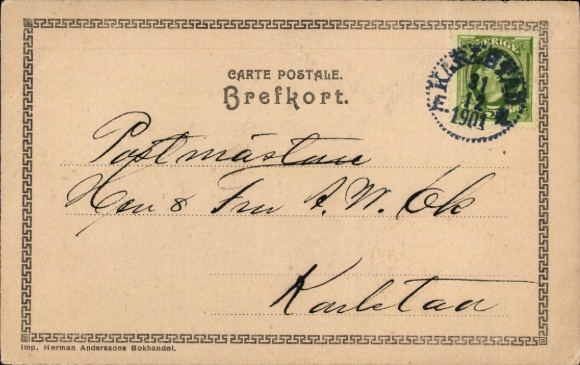 CARTE POSTALE.
Brefkort.
SVERIGE
KARLSTAD
31
12
1901
Postmästare
Herr & Fru A. W. Ek
Karlstad
Imp. Herman Anderssons Bokhandel.